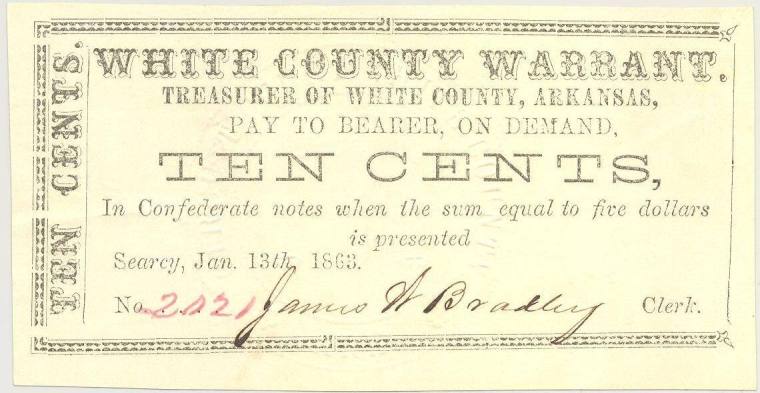 TEN CENTS.
WHITE COUNTY WARRANT.
TREASURER OF WHITE COUNTY, ARKANSAS,
PAY TO BEARER, ON DEMAND,
TEN CENTS,
In Confederate notes when the sum equal to five dollars
is presented
Searcy, Jan. 13th, 1863.
No. 2121 James W Bradley Clerk.